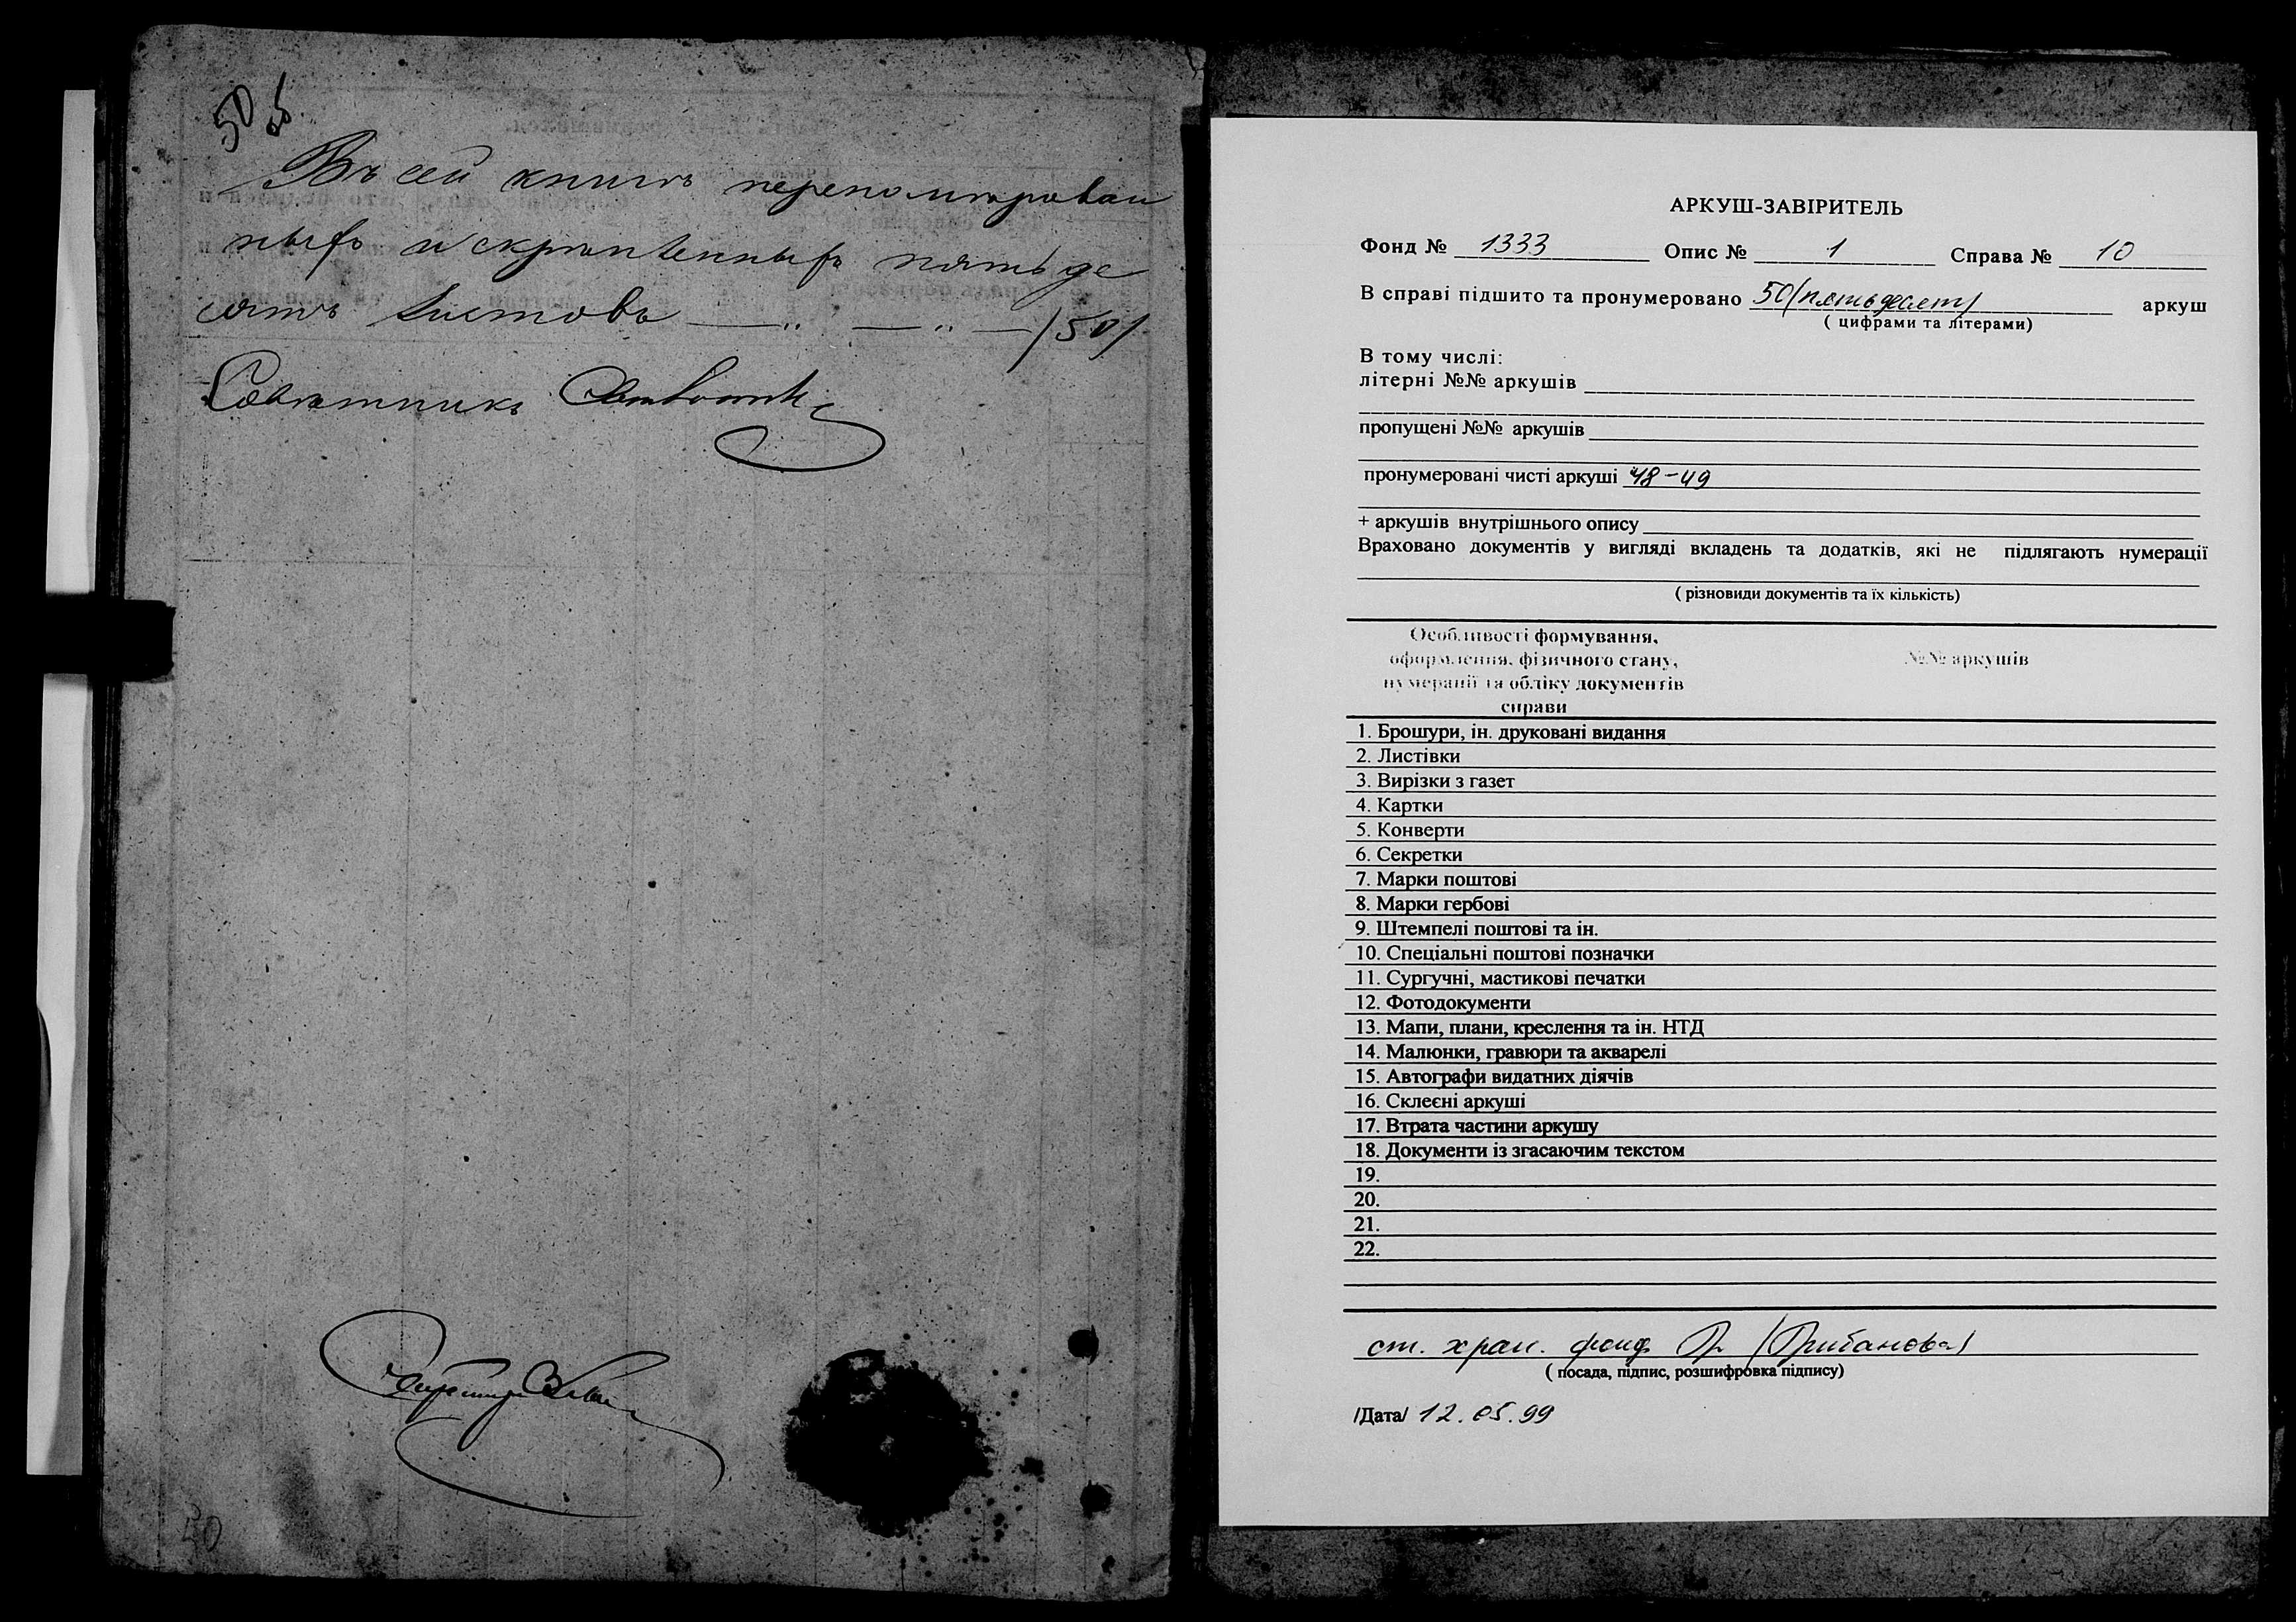 50 об.
Въ сей книгѣ перенумерован
ныхъ и скрѣпленныхъ пятьде
сятъ листовъ — „ — „ — /50/
Совѣтникъ
50
АРКУШ-ЗАВІРИТЕЛЬ
Фонд № 1333 Опис № 1 Справа № 10
В справі підшито та пронумеровано 50 (пятьдесят) аркуш
( цифрами та літерами)
В тому числі:
літерні №№ аркушів
пропущені №№ аркушів
пронумеровані чисті аркуші 48-49
+ аркушів внутрішнього опису
Враховано документів у вигляді вкладень та додатків, які не підлягають нумерації
( різновиди документів та їх кількість)
Особливості формування,
оформлення, фізичного стану, №№ аркушів
нумерації та обліку документів
справи
1. Брошури, ін. друковані видання
2. Листівки
3. Вирізки з газет
4. Картки
5. Конверти
6. Секретки
7. Марки поштові
8. Марки гербові
9. Штемпелі поштові та ін.
10. Спеціальні поштові позначки
11. Сургучні, мастикові печатки
12. Фотодокументи
13. Мапи, плани, креслення та ін. НТД
14. Малюнки, гравюри та акварелі
15. Автографи видатних діячів
16. Склеєні аркуші
17. Втрата частини аркушу
18. Документи із згасаючим текстом
19.
20.
21.
22.
ст. хран. фонд. Гр (Грибанова)
( посада, підпис, розшифровка підпису)
/Дата/ 12.05.99